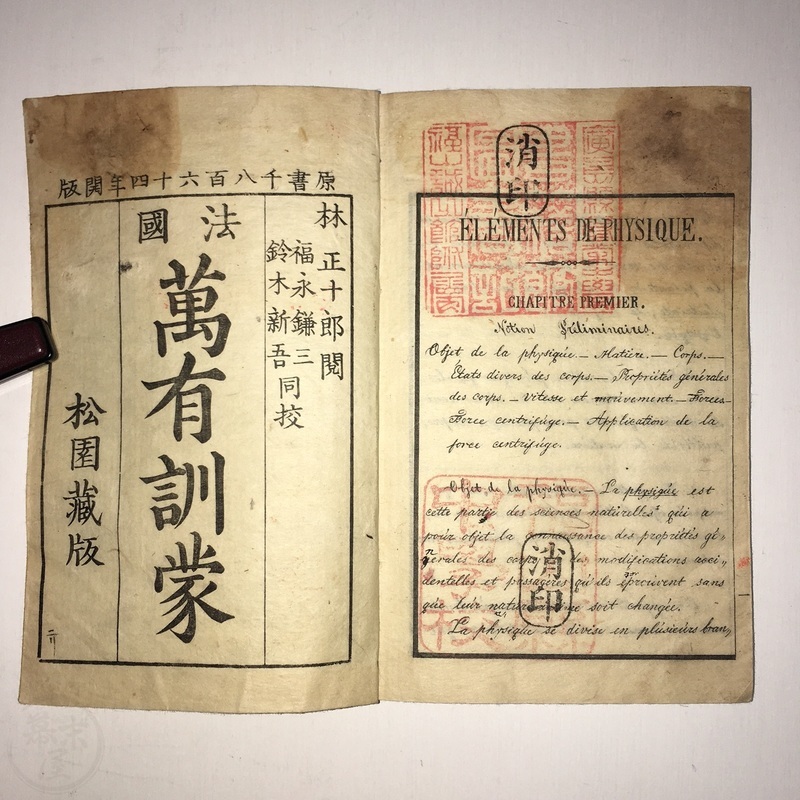 原書千八百六十四年開版
林正十郎閲
福永鎌三
鈴木新吾同挍
法國
萬有訓蒙
松園藏版
消印
ÉLÉMENTS DE PHYSIQUE.
CHAPITRE PREMIER.
Notion Préliminaires.
Objet de la physique.— Matière.— Corps.—
États divers des corps.— Propriétés générales
des corps.— Vitesse et mouvement.— Forces—
Force centrifuge.— Application de la
force centrifuge.
Objet de la physique.— La physique est
cette partie des sciences naturelles qui a
pour objet la connaissance des propriétés gé„
nérales des corps des modifications acci„
dentelles et passagères qu'ils éprouvent sans
que leur nature soit changée.
La physique se divise en plusieurs bran„
消印